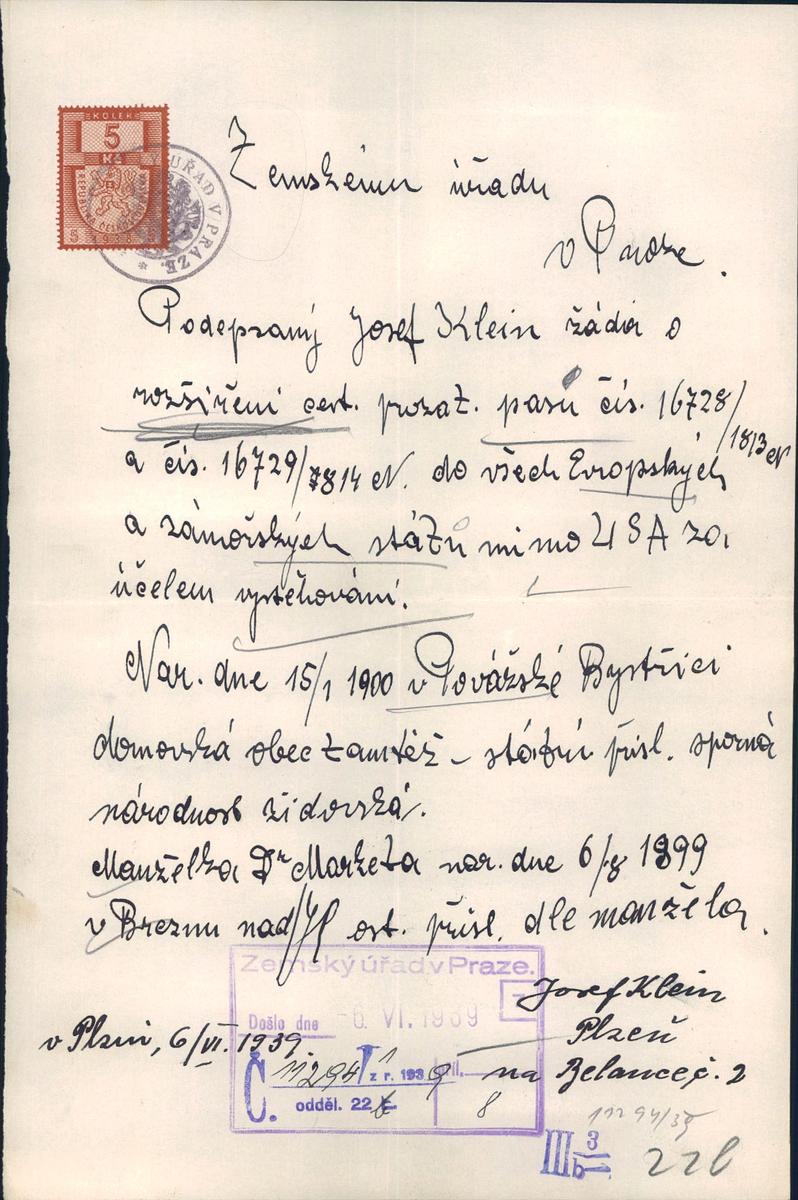 KOLEK
5
Kč
5 1938
ÚŘAD V PRAZE.
Zemskému úřadu
v Praze.
Podepsaný Josef Klein žádá o
rozšíření cert. prozat. pasu čís. 16728/1813 eN
a čís. 16729/7814 eN. do všech Evropských
a zámořských států mimo USA za
účelem vystěhování.
Nar. dne 15/1 1900 v Povážské Bystřici
domovská obec tamtéž – státní přísl. sporná
národnost židovská.
Manželka Dr Marketa nar. dne 6/8 1899
v Breznu nad/H ost. přísl. dle manžela.
Zemský úřad v Praze.
Došlo dne -6. VI. 1939
v Plzni, 6/VI. 1939.
Josef Klein
Plzeň
na Belance, č. 2
Č. 11294 z r. 1939
odděl. 22
8
11294/39
IIIb 3
22b